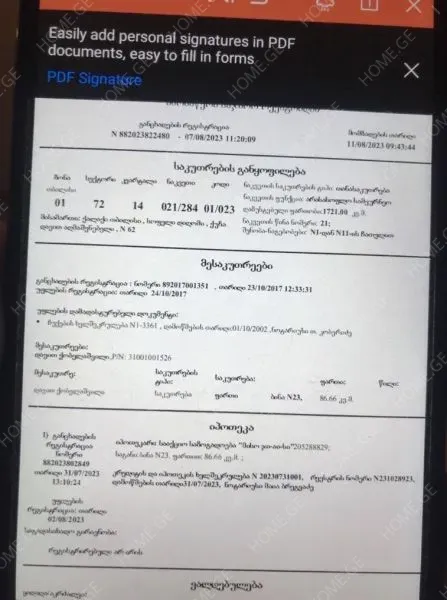 Easily add personal signatures in PDF
documents, easy to fill in forms
PDF Signature
განცხადების რეგისტრაცია
N 882023822480 - 07/08/2023 11:20:09
მომზადების თარიღი
11/08/2023 09:43:44
საკუთრების განყოფილება
ზონა სექტორი კვარტალი ნაკვეთი კოდი
თბილისი
01 72 14 021/284 01/023
მისამართი: ქალაქი თბილისი , სოფელი დიღომი , ქუჩა
დავით აღმაშენებელი , N 62
ნაკვეთის საკუთრების ტიპი: თანასაკუთრება
ნაკვეთის ფუნქცია: არასასოფლო სამეურნეო
დაზუსტებული ფართობი:1721.00 კვ.მ.
ნაკვეთის წინა ნომერი: 23;
შენობა-ნაგებობები: N1-დან N11-ის ჩათვლით
მესაკუთრეები
განცხადების რეგისტრაცია : ნომერი 892017001351 , თარიღი 23/10/2017 12:33:31
უფლების რეგისტრაცია: თარიღი 24/10/2017
უფლების დამადასტურებელი დოკუმენტი:
• ჩუქების ხელშეკრულება N1-3361 , დამოწმების თარიღი:01/10/2002 ,ნოტარიუსი თ. კობერიძე
მესაკუთრეები:
დავით ქობელაშვილი,P/N: 31001001526
მესაკუთრე: საკუთრების ტიპი: საკუთრება: ფართი: წილი:
დავით ქობელაშვილი საკუთრება ფართი ბინა N23, 86.66 კვ.მ.
იპოთეკა
1) განცხადების
რეგისტრაცია
ნომერი
882023802849
თარიღი 31/07/2023
13:10:24
იპოთეკარი: სააქციო საზოგადოება 205288829;
საგანი: ბინა N23. ფართით: 86.66 კვ.მ. ;
კრედიტის და იპოთეკის ხელშეკრულება N 20230731001, რეესტრის ნომერი N231028923,
დამოწმების თარიღი31/07/2023, ნოტარიუსი მაია ბრეგვაძე
უფლების
რეგისტრაცია: თარიღი
02/08/2023
საგადასახადო გირავნობა:
რეგისტრირებული არ არის
ვალდებულება